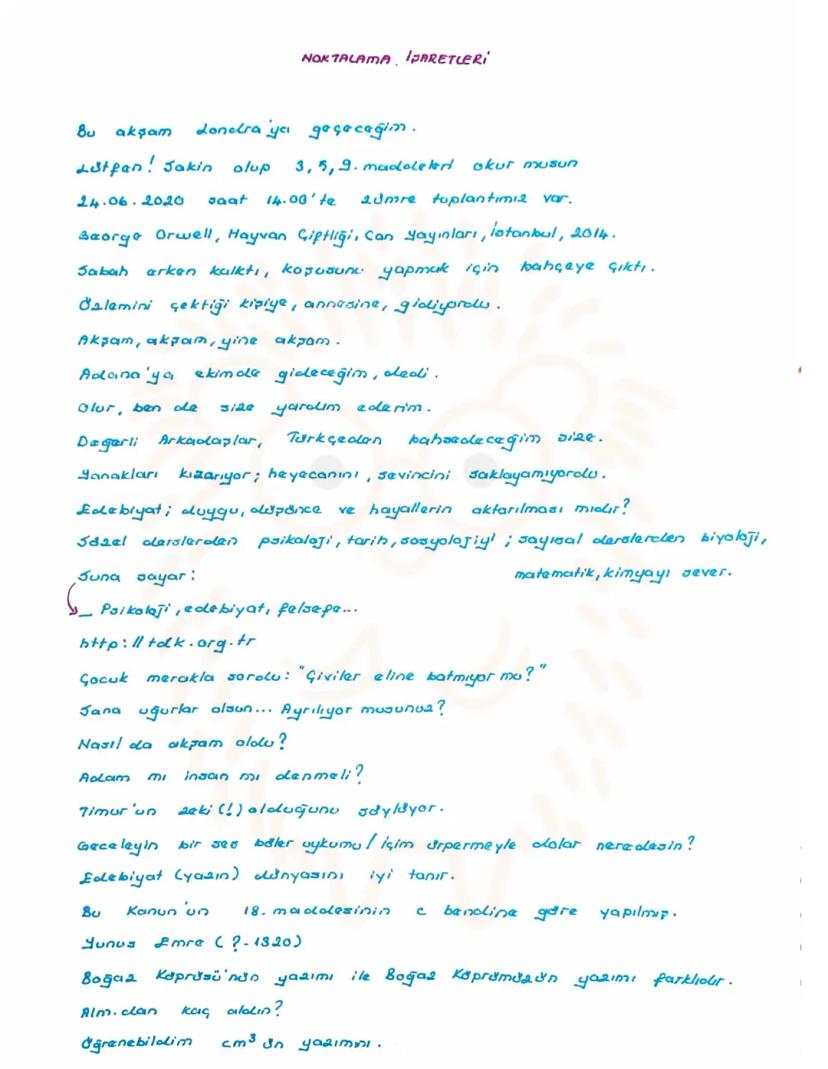 NOKTALAMA İŞARETLERİ
Bu akşam Londra'ya geçeceğim.
Lütfen! Sakin olup 3, 5, 9. maddeleri okur musun
24.06.2020 saat 14.00'te zümre toplantımız var.
George Orwell, Hayvan Çiftliği, Can Yayınları, İstanbul, 2014.
Sabah erken kalktı, koşusunu yapmak için bahçeye çıktı.
Özlemini çektiği kişiye, annesine, gidiyordu.
Akşam, akşam, yine akşam.
Adana'ya ekimde gideceğim, dedi.
Olur, ben de size yardım ederim.
Değerli Arkadaşlar, Türkçeden bahsedeceğim size.
Yanakları kızarıyor; heyecanını, sevincini saklayamıyordu.
Edebiyat; duygu, düşünce ve hayallerin aktarılması mıdır?
Sözel derslerden psikoloji, tarih, sosyolojiyi; sayısal derslerden biyoloji,
matematik, kimyayı sever.
Suna sayar:
_ Psikoloji, edebiyat, felsefe...
http://tdk.org.tr
Çocuk merakla sordu: "Çiviler eline batmıyor mu?"
Sana uğurlar olsun... Ayrılıyor musunuz?
Nasıl da akşam oldu?
Adam mı insan mı denmeli?
Timur'un zeki (!) olduğunu söylüyor.
Geceleyin bir ses böler uykumu / İçim ürpermeyle dolar neredesin?
Edebiyat (yazın) dünyasını iyi tanır.
Bu Kanun'un 18. maddesinin c bendine göre yapılmış.
Yunus Emre (?-1320)
Boğaz Köprüsü'nün yazımı ile Boğaz Köprümüzün yazımı farklıdır.
Alm.dan kaç aldın?
Öğrenebildim cm³ ün yazımını.